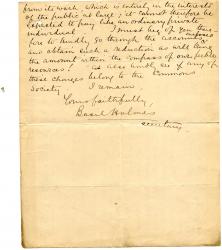 from its work which is entirely in the interests
of the public at large; it cannot therefore be
expected to pay like an ordinary private
individual I must beg of you there-
fore to kindly go through the account
and obtain such a reduction as will bring
the amount within the compass of our
resources as also kindly see if any of
these charges belong to the Commons
Society I remain,
Yours faithfully,
Basil Holmes
secretary